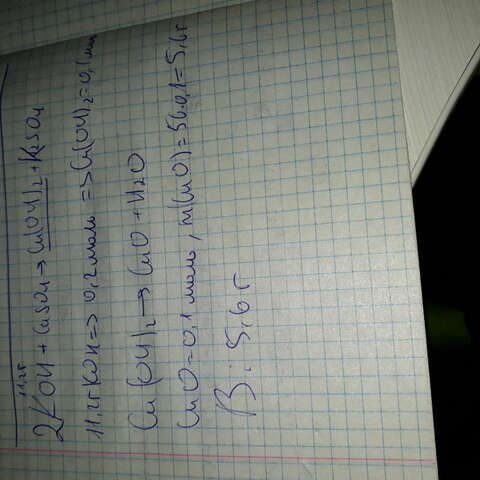 11,2г
2KOH + CuSO4 → Cu(OH)2 + K2SO4
11,2г KOH => 0,2 моль => Cu(OH)2 = 0,1 мол
Cu(OH)2 → CuO + H2O
CuO = 0,1 моль, m(CuO) = 56·0,1 = 5,6г
В: 5,6 г